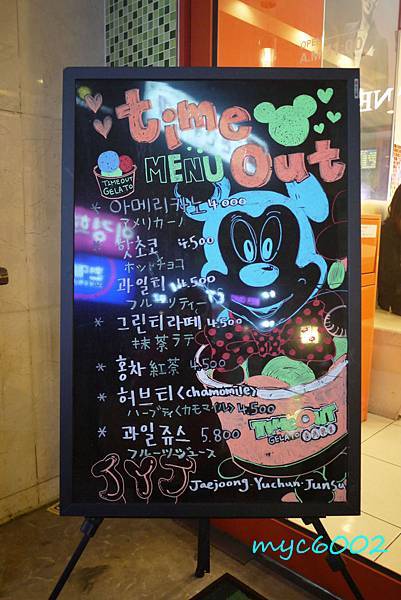 time
MENU Out
TIMEOUT
GELATO
* 아메리카노 4000
アメリカーノ
* 핫초코 4.500
ホットチョコ
* 과일티 4.500
フルーツティー
* 그린티라떼 4.500
抹茶ラテ
* 홍차 紅茶 4.500
* 허브티<chamomile>
ハーブティ<カモマイル> 4.500
* 과일쥬스 5.800
フルーツジュース
TIMEOUT
GELATO BABE
JYJ Jaejoong.Yuchun.Junsu
myc6002